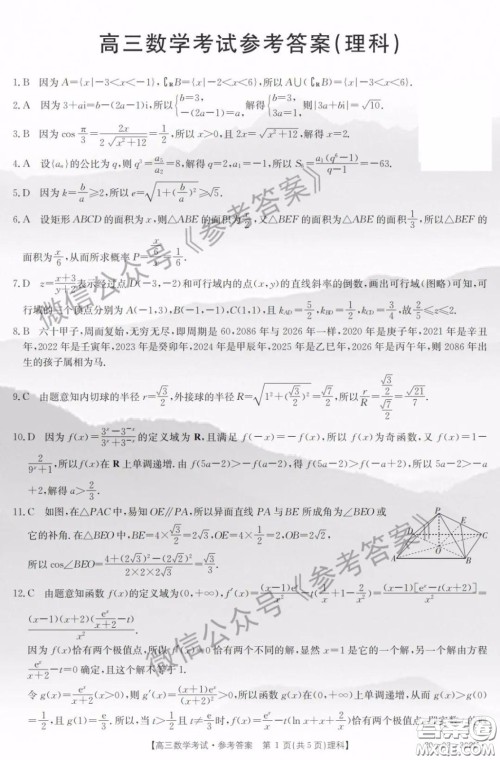 高三数学考试参考答案(理科)
1. B 因为 A={x|-3<x<-1}, ∁ᵣB={x|-2<x<6}, 所以 A∪(∁ᵣB)={x|-3<x<6}.
2. A 因为 3+ai=b-(2a-1)i, 所以{b=3, -(2a-1)=a, 解得{b=3, a=1/3, 则|3a+bi|=√10.
3. B 因为 cos π/3=2x/√(x²+12)=1/2, 所以 x>0, 且 2x=√(x²+12), 解得 x=2.
4. A 设{aₙ}的公比为 q, 则 q³=a₆/a₃=8, 解得 q=2, a₁=-1, 所以 S₆=a₁(q⁶-1)/(q-1)=-63.
5. D 因为 k=b/a≥2, 所以 e=√(1+(b/a)²)≥√5.
6. A 设矩形 ABCD 的面积为 x, 则△ABE 的面积为 x/2, 又△BEF 的面积为△ABE 的面积的 1/3, 所以△BEF 的
面积为 x/6, 从而所求概率 P=(x/6)/x=1/6.
7. D z=(y+2)/(x+3)表示经过点 D(-3,-2)和可行域内的点(x,y)的直线斜率的倒数, 画出可行域(图略)可知, 可
行域的三个顶点分别为 A(-1,3), B(-1,-1), C(1,1), 且 k_AD=5/2, k_BD=1/2, k_CD=3/4, 故
8. B 六十甲子, 周而复始, 无穷无尽, 即周期是 60, 2086 年与 2026 年一样, 2020 年是庚子年, 2021 年是辛丑
年, 2022 年是壬寅年, 2023 年是癸卯年, 2024 年是甲辰年, 2025 年是乙巳年, 2026 年是丙午年, 则 2086 年出
生的孩子属相为马.
9. C 由题意知内切球的半径 r=√3/2, 外接球的半径 R=√(1²+(√3/2)²)=√7/2, 所以 r/R=(√3/2)/(√7/2)=√21/7.
10. D 因为 f(x)=(3ˣ-3⁻ˣ)/(3ˣ+3⁻ˣ)的定义域为 R, 且满足 f(-x)=-f(x), 所以 f(x)为奇函数, 又 f(x)=1-
2/(9ˣ+1), 所以 f(x)在 R 上单调递增. 由 f(5a-2)>-f(a-2), 得 f(5a-2)>f(-a+2), 所以 5a-2>-a+
2, 解得 a>2/3.
11. C 如图, 在△PAC 中, 易知 OE∥PA, 所以异面直线 PA 与 BE 所成角为∠BEO 或
它的补角. 在△BEO 中, BE=4×√3/2=2√3, OE=4×1/2=2, OB=2√2,
所以 cos∠BEO=(4+(2√3)²-(2√2)²)/(2×2×2√3)=√3/3.
P
E
C
D
O
A
B
12. C 由题意知函数 f(x)的定义域为(0,+∞), f'(x)=(x-1)[eˣ-t(x+2)]/x²=
(x-1)(x+2)(eˣ/(x+2)-t)/x².
因为 f(x)恰有两个极值点, 所以 f'(x)=0 恰有两个不同的解, 显然 x=1 是它的一个解, 另一个解由方程
eˣ/(x+2)-t=0 确定, 且这个解不等于 1.
令 g(x)=eˣ/(x+2)(x>0), 则 g'(x)=(x+1)eˣ/(x+2)²>0, 所以函数 g(x)在(0,+∞)上单调递增, 从而 g(x)>g(0)
=1/2, 且 g(1)=e/3. 所以, 当 t>1/2 且 t≠e/3 时, f(x)=eˣ/x-t(ln x+x+2/x)恰有两个极值点.
【高三数学考试·参考答案 第 1 页(共 5 页)理科】
微信公众号《参考答案》
微信公众号《参考答案》